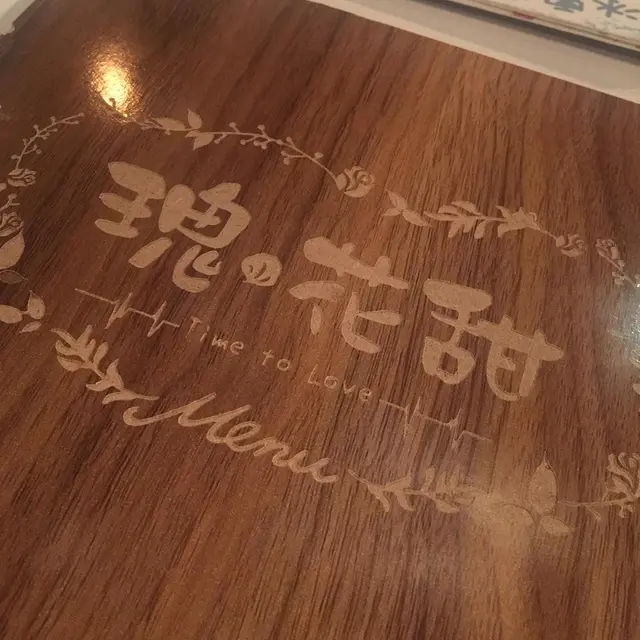 花甜
Time to Love
Menu